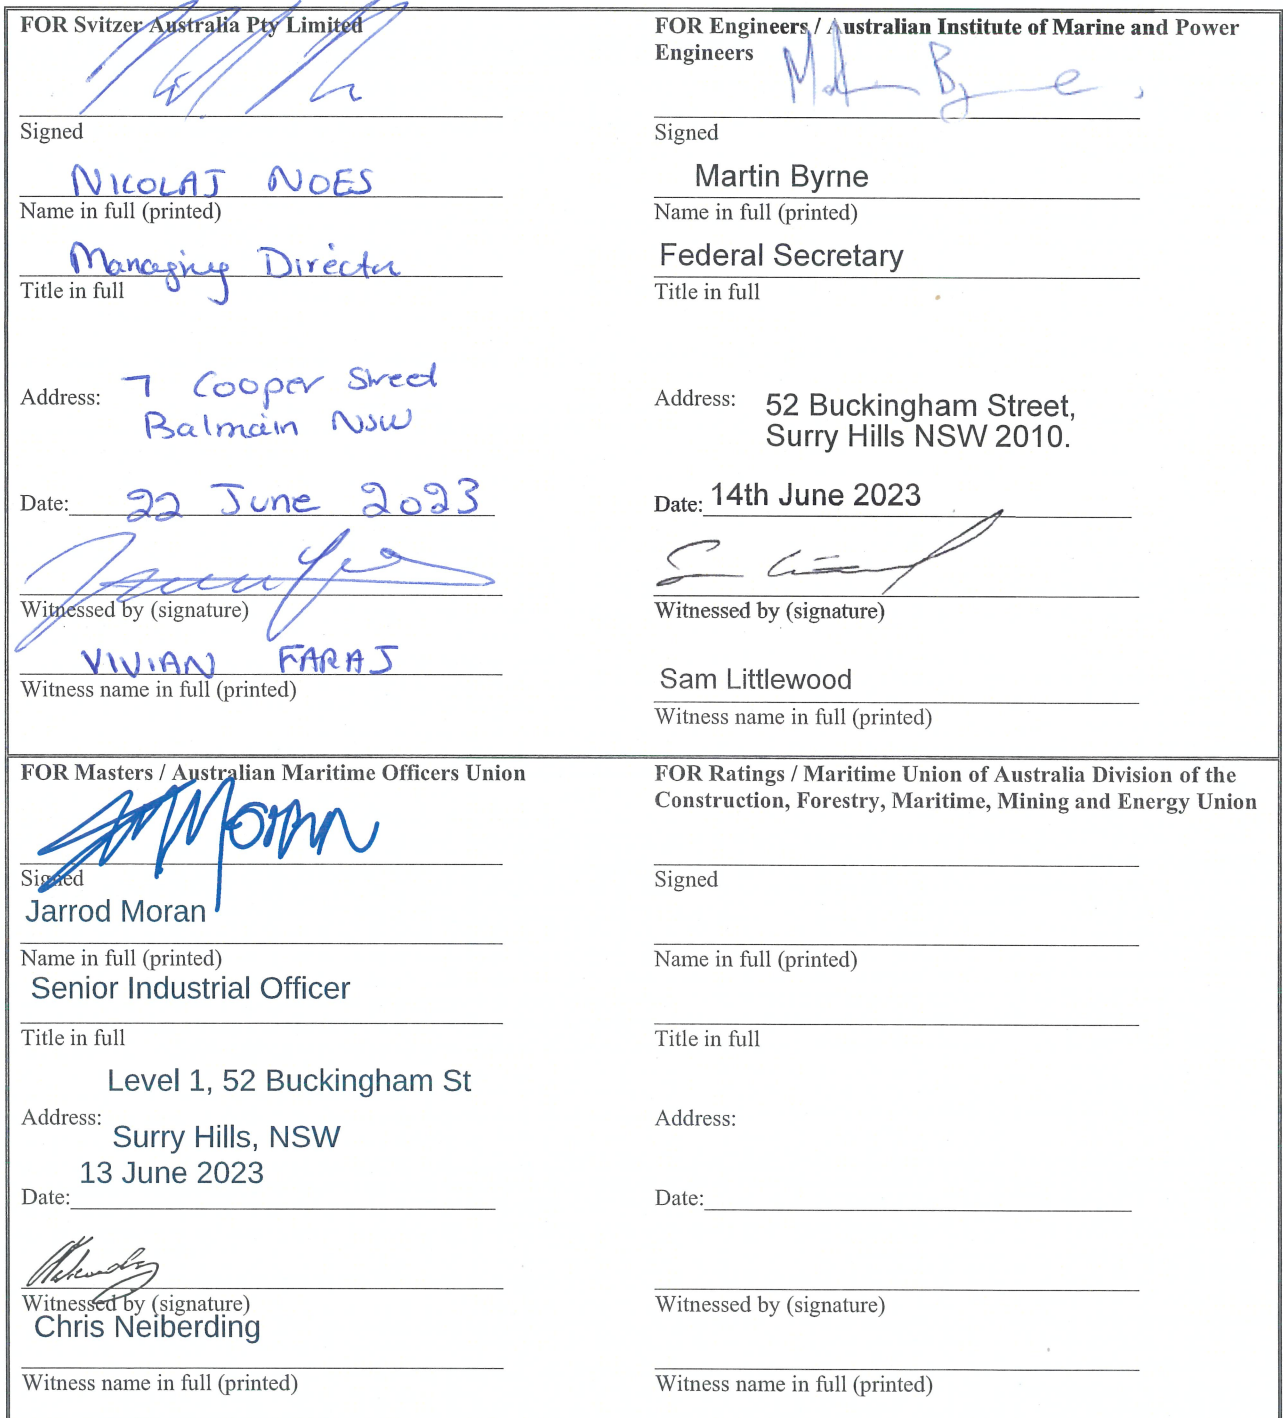 FOR Svitzer Australia Pty Limited
Signed
NICOLAJ NOES
Name in full (printed)
Managing Director
Title in full
Address: 7 Cooper Street
Balmain NSW
Date: 22 June 2023
Witnessed by (signature)
VIVIAN FARAJ
Witness name in full (printed)
FOR Engineers / Australian Institute of Marine and Power
Engineers
Martin Byrne
Signed
Martin Byrne
Name in full (printed)
Federal Secretary
Title in full
Address: 52 Buckingham Street,
Surry Hills NSW 2010.
Date: 14th June 2023
Witnessed by (signature)
Sam Littlewood
Witness name in full (printed)
FOR Masters / Australian Maritime Officers Union
Moran
Signed
Jarrod Moran
Name in full (printed)
Senior Industrial Officer
Title in full
Level 1, 52 Buckingham St
Address:
Surry Hills, NSW
13 June 2023
Date:
Witnessed by (signature)
Chris Neiberding
Witness name in full (printed)
FOR Ratings / Maritime Union of Australia Division of the
Construction, Forestry, Maritime, Mining and Energy Union
Signed
Name in full (printed)
Title in full
Address:
Date:
Witnessed by (signature)
Witness name in full (printed)